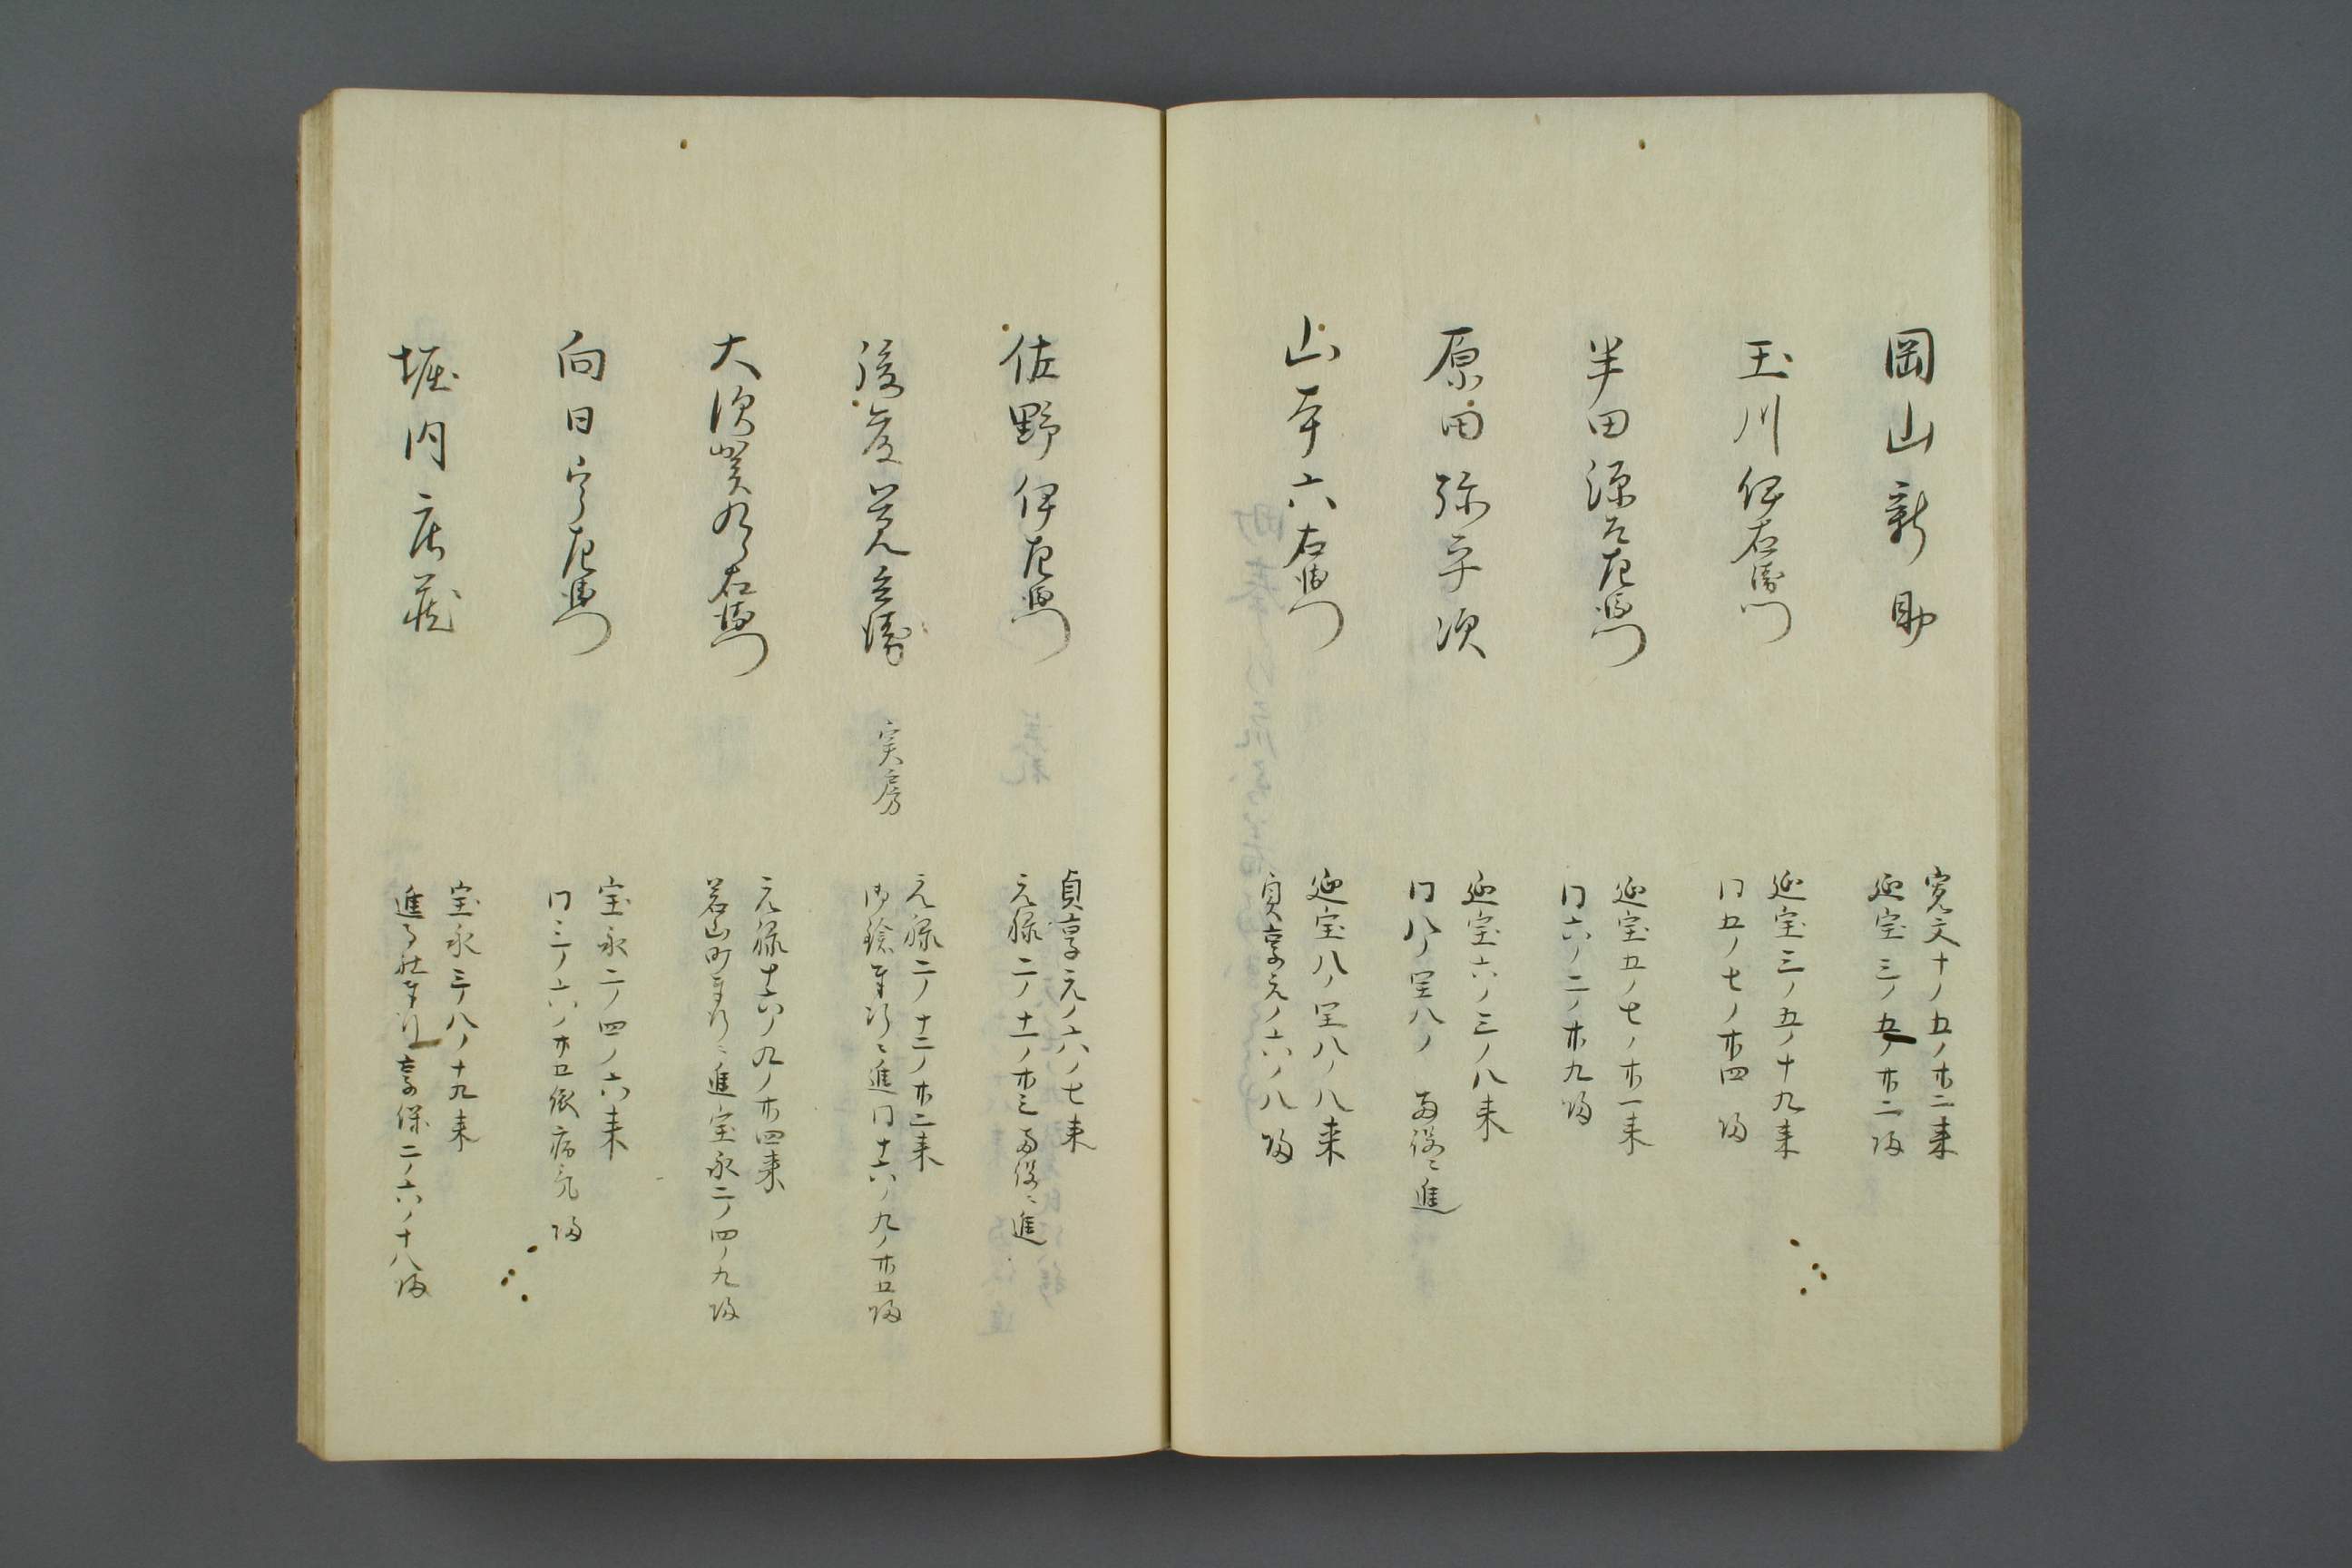 岡山新助
寛文十ノ五ノ廿二来
延宝三ノ五ノ廿二帰
玉川伊右衛門
延宝三ノ五ノ十九来
同五ノ七ノ廿四帰
半田源五左衛門
延宝五ノ七ノ廿一来
同六ノ二ノ廿九帰
原田弥平次
延宝六ノ三ノ八来
同八ノ閏八ノ 両役ニ進
山本六右衛門
延宝八ノ閏八ノ八来
貞享元ノ六ノ八帰
佐野伊左衛門
貞享元ノ六ノ七来
元禄二ノ十一ノ廿三両役ニ進
後藤覚兵衛 実房
元禄二ノ十二ノ廿二来
奉行ニ進同十六ノ九ノ廿五帰
大須賀九右衛門
元禄十六ノ九ノ廿四来
若山町奉行ニ進宝永二ノ四ノ九帰
向日宇左衛門
宝永二ノ四ノ六来
同三ノ六ノ廿五依病気帰
堀内店蔵
宝永三ノ八ノ十九来
進寺社奉行享保二ノ六ノ十八帰